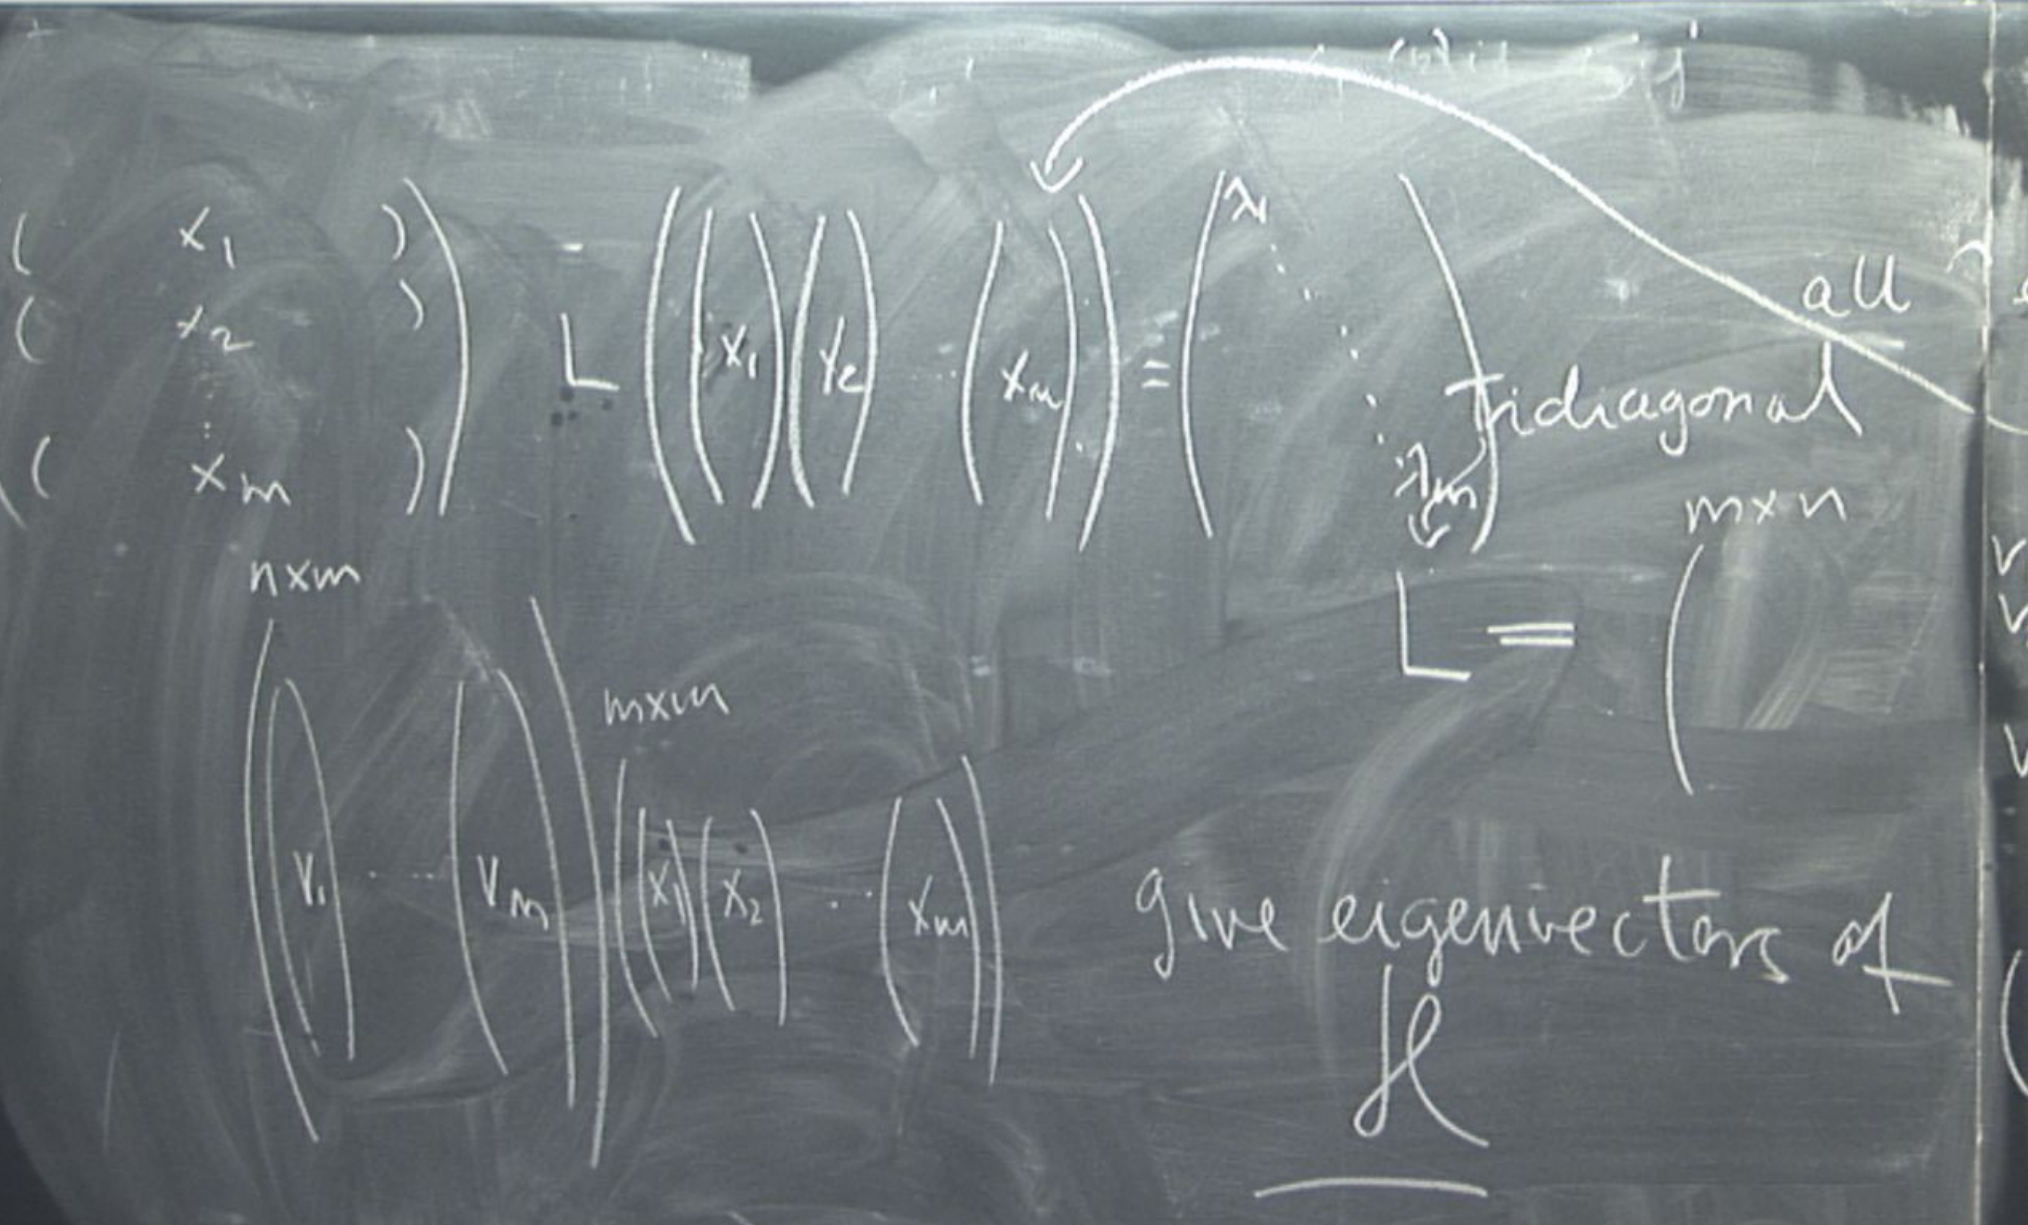 ( x₁ )
( x₂ )
⋮
( xₘ )
L ( ( x₁ ) ( x₂ ) ... ( xₘ ) ) = ( λ₁ ⋱ λₘ )
all
Tridiagonal
n×m
m×n
L = (
m×m
( ( v₁ ) ... ( vₘ ) ) ( ( x₁ ) ( x₂ ) ... ( xₘ ) )
give eigenvectors of
H